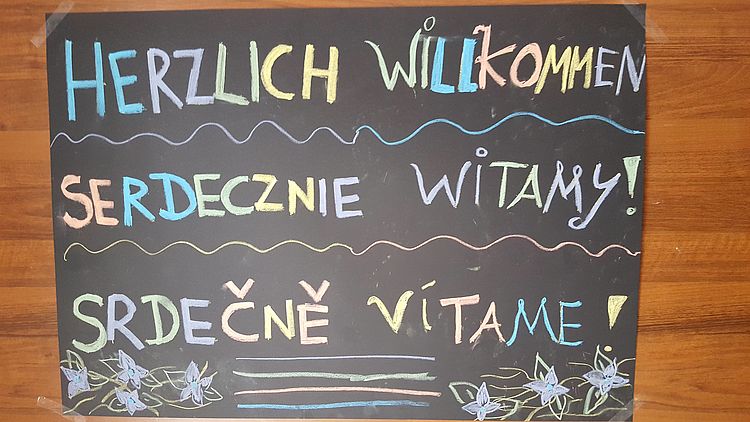 HERZLICH WILLKOMMEN
SERDECZNIE WITAMY!
SRDEČNĚ VÍTAME!